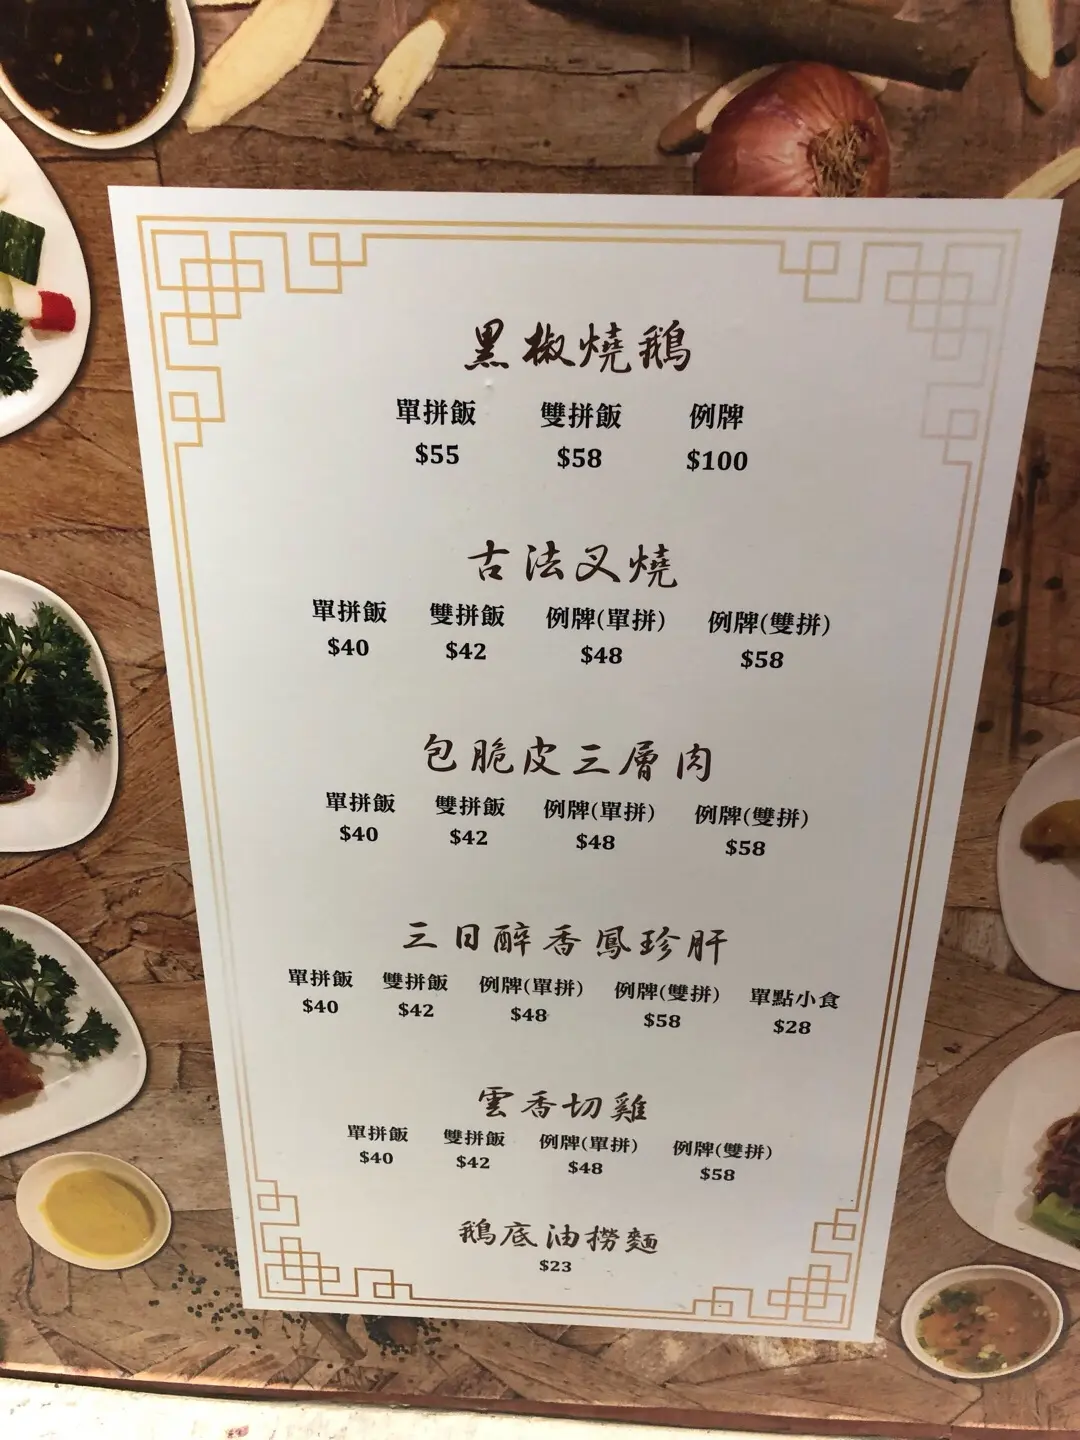 黑椒燒鵝
單拼飯 雙拼飯 例牌
$55 $58 $100
古法叉燒
單拼飯 雙拼飯 例牌(單拼) 例牌(雙拼)
$40 $42 $48 $58
包脆皮三層肉
單拼飯 雙拼飯 例牌(單拼) 例牌(雙拼)
$40 $42 $48 $58
三日醉香鳳珍肝
單拼飯 雙拼飯 例牌(單拼) 例牌(雙拼) 單點小食
$40 $42 $48 $58 $28
雲香切雞
單拼飯 雙拼飯 例牌(單拼) 例牌(雙拼)
$40 $42 $48 $58
鵝底油撈麵
$23